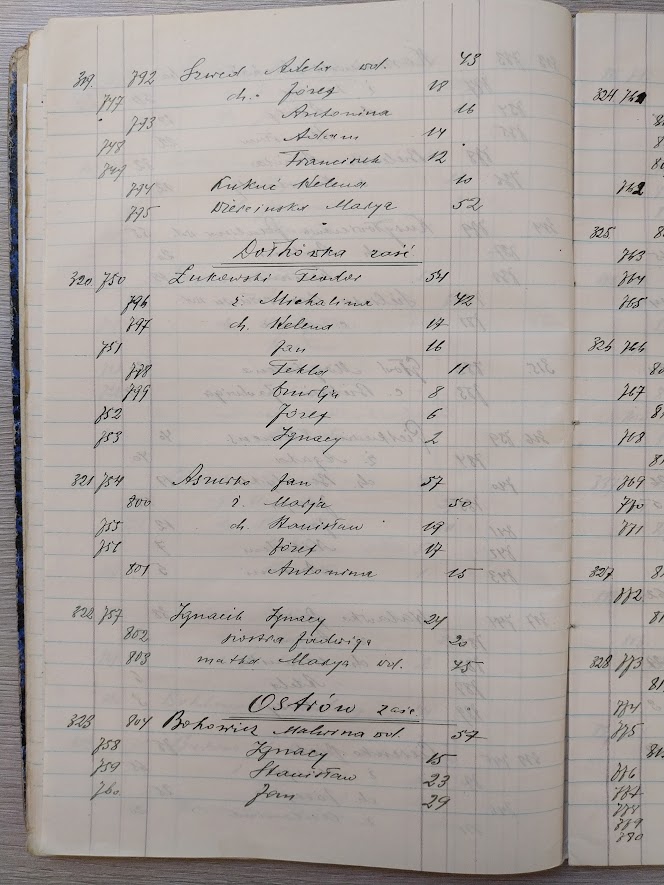 319. 792 Szwed Adela wd. 43
747 ch. Józef 18
793 Antonina 16
748 Adam 14
749 Franciszek 12
794 Kukuć Helena 10
795 Marya 52
Dołhówka zaść
320 750 Łukowski Teodor 54
796 ż. Michalina 42
797 ch. Helena 17
751 Jan 16
798 Tekla 11
799 Emilja 8
752 Józef 6
753 Ignacy 2
321 754 Jan 57
800 ż. Marja 50
755 ch. Stanisław 19
756 Józef 17
801 Antonina 15
322 757 Ignacy 24
802 siostra Jadwiga 20
803 matka Marya wd. 45
Ostrów zaśc.
323 804 Bohowicz Malwina wd. 57
758 Ignacy 15
759 Stanisław 23
760 Jan 29
324 761
762
325
763
764
765
326 766
767
768
769
770
771
327
772
328 773
774
775
776
777
778
779
780